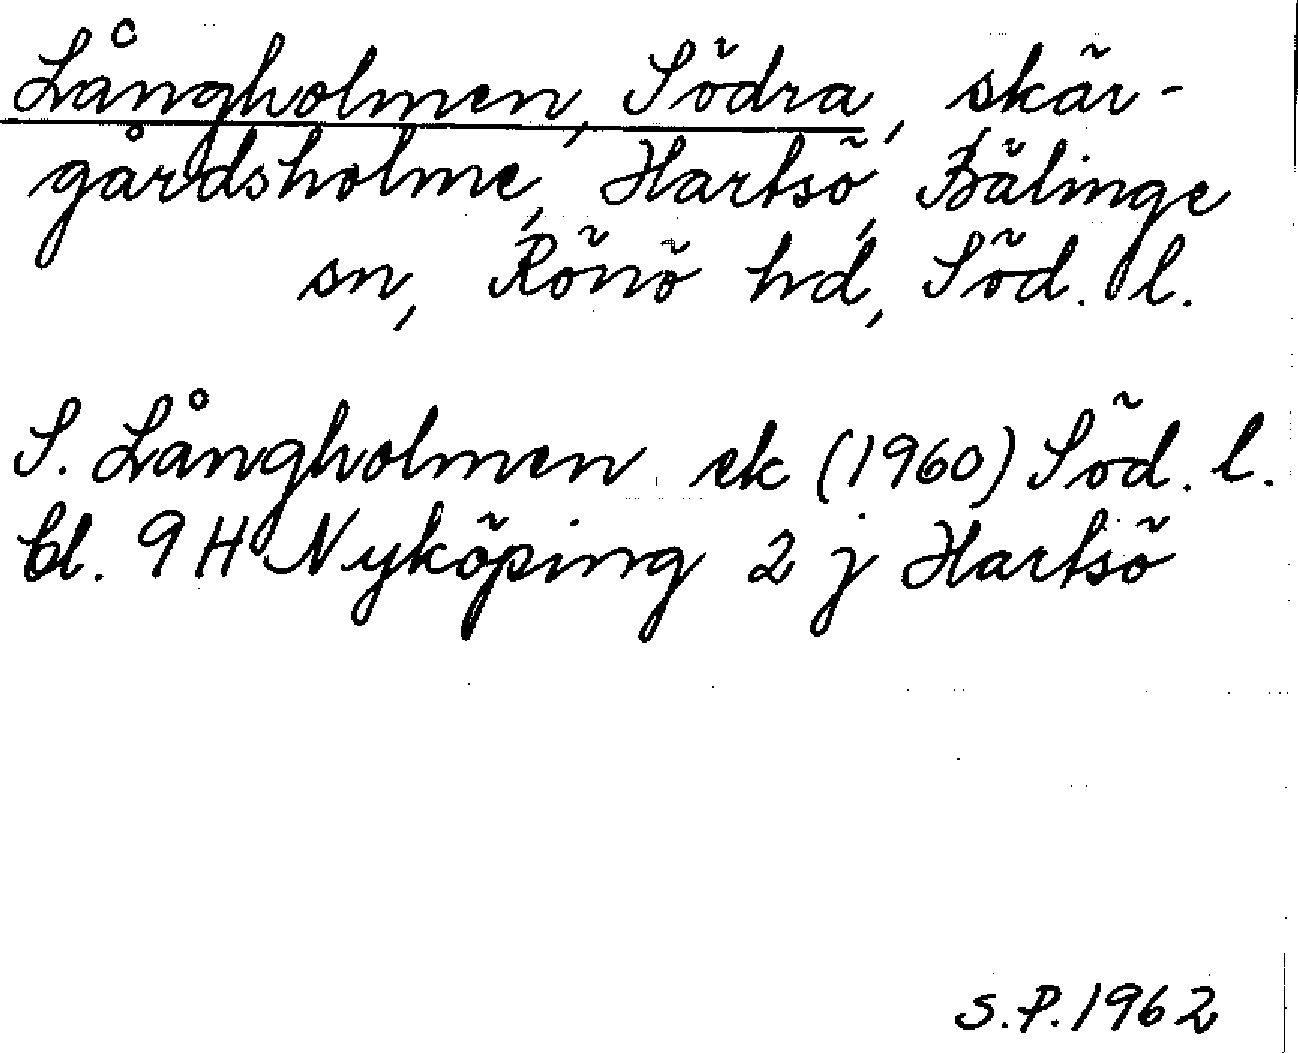 Långholmen, Södra, skär-
gårdsholme, Hartsö, Bälinge
sn, Rönö hd, Söd. l.
S. Långholmen ek (1960) Söd. l.
bl. 9 H Nyköping 2 j Hartsö
S.P. 1962